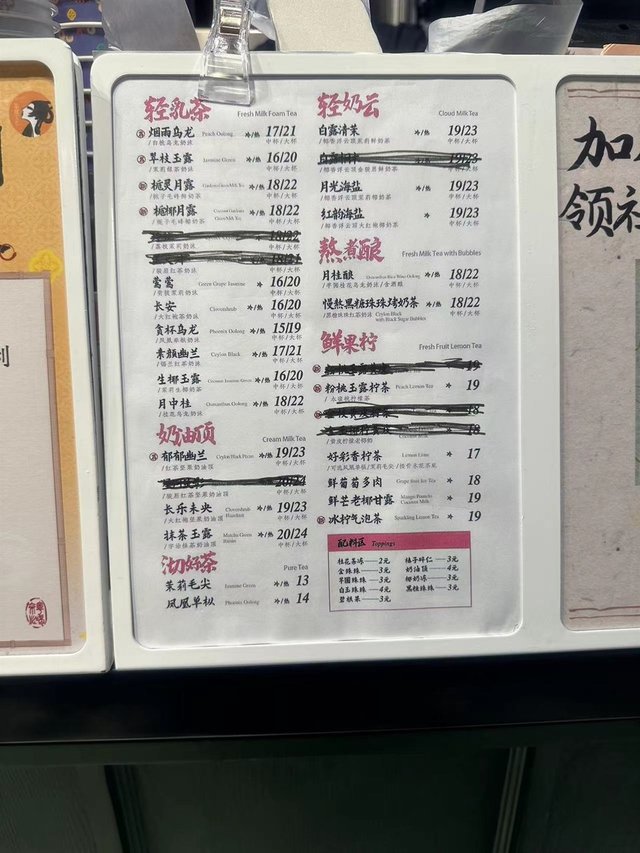 轻乳茶 Fresh Milk Foam Tea
烟雨乌龙 Peach Oolong 冷/热 17/21
/白桃乌龙奶沫 中杯/大杯
翠枝玉露 Jasmine Green 冷/热 16/20
/茉莉绿茶奶沫 中杯/大杯
栀灵月露 冷/热 18/22
/栀子毛峰鲜奶茶 中杯/大杯
栀椰月露 冷/热 18/22
/栀子毛峰椰奶茶 中杯/大杯
/荔枝茉莉奶沫 中杯/大杯
/骏眉红茶奶沫 中杯/大杯
莺莺 Green Grape Jasmine 冷 16/20
/青提茉莉奶沫 中杯/大杯
长安 Clovershrub 冷/热 16/20
/大红袍茶奶沫 中杯/大杯
贪杯乌龙 Phoenix Oolong 冷/热 15/19
/凤凰单枞奶沫 中杯/大杯
素颜幽兰 Ceylon Black 冷/热 17/21
/锡兰红茶奶沫 中杯/大杯
生椰玉露 Coconut Jasmine Green 冷/热 16/20
/茉莉生椰奶茶 中杯/大杯
月中桂 Osmanthus Oolong 冷/热 18/22
/桂花乌龙奶沫 中杯/大杯
奶油顶 Cream Milk Tea
郁郁幽兰 Ceylon Black Pecan 冷/热 19/23
/红茶坚果奶油顶 中杯/大杯
20/24
/骏眉红茶坚果奶油顶 中杯/大杯
长乐未央 Clovershrub Hazelnut 冷/热 19/23
/大红袍坚果奶油顶 中杯/大杯
抹茶玉露 Matcha Green Raisin 冷/热 20/24
/宇治抹茶奶油顶 中杯/大杯
沏好茶 Pure Tea
茉莉毛尖 Jasmine Green 冷/热 13
凤凰单枞 Phoenix Oolong 冷/热 14
轻奶云 Cloud Milk Tea
白露清茉 冷/热 19/23
/椰香浮云顶茉莉鲜奶茶 中杯/大杯
19/23
中杯/大杯
月光海盐 冷/热 19/23
中杯/大杯
红韵海盐 冷 19/23
/椰香浮云顶大红袍椰奶茶 中杯/大杯
熬煮酿 Fresh Milk Tea with Bubbles
月桂酿 Osmanthus Rice Wine Oolong 冷/热 18/22
/芋圆桂花乌龙奶沫/含酒酿 中杯/大杯
慢熬黑糖珠珠烤奶茶 冷/热 18/22
/黑糖珠珠红茶奶沫 Ceylon Black with Black Sugar Bubbles 中杯/大杯
鲜果柠 Fresh Fruit Lemon Tea
19
粉桃玉露柠茶 Peach Lemon Tea 冷 19
/水蜜桃柠檬茶
18
/黄皮柠檬老椰奶
好彩香柠茶 Lemon Lime 冷 17
鲜葡萄多肉 Grape fruit Ice Tea 冷 18
鲜芒老椰甘露 Mango Pomelo Coconut Milk 冷 19
冰柠气泡茶 Sparkling Lemon Tea 冷 19
配料区 Toppings
桂花茶冻——2元 桔子碎仁——3元
金珠珠——3元 奶油顶——4元
芋圆珠珠——3元 椰奶冻——3元
白玉珠珠——4元 黑糖珠珠——3元
碧根果——3元
加
领社